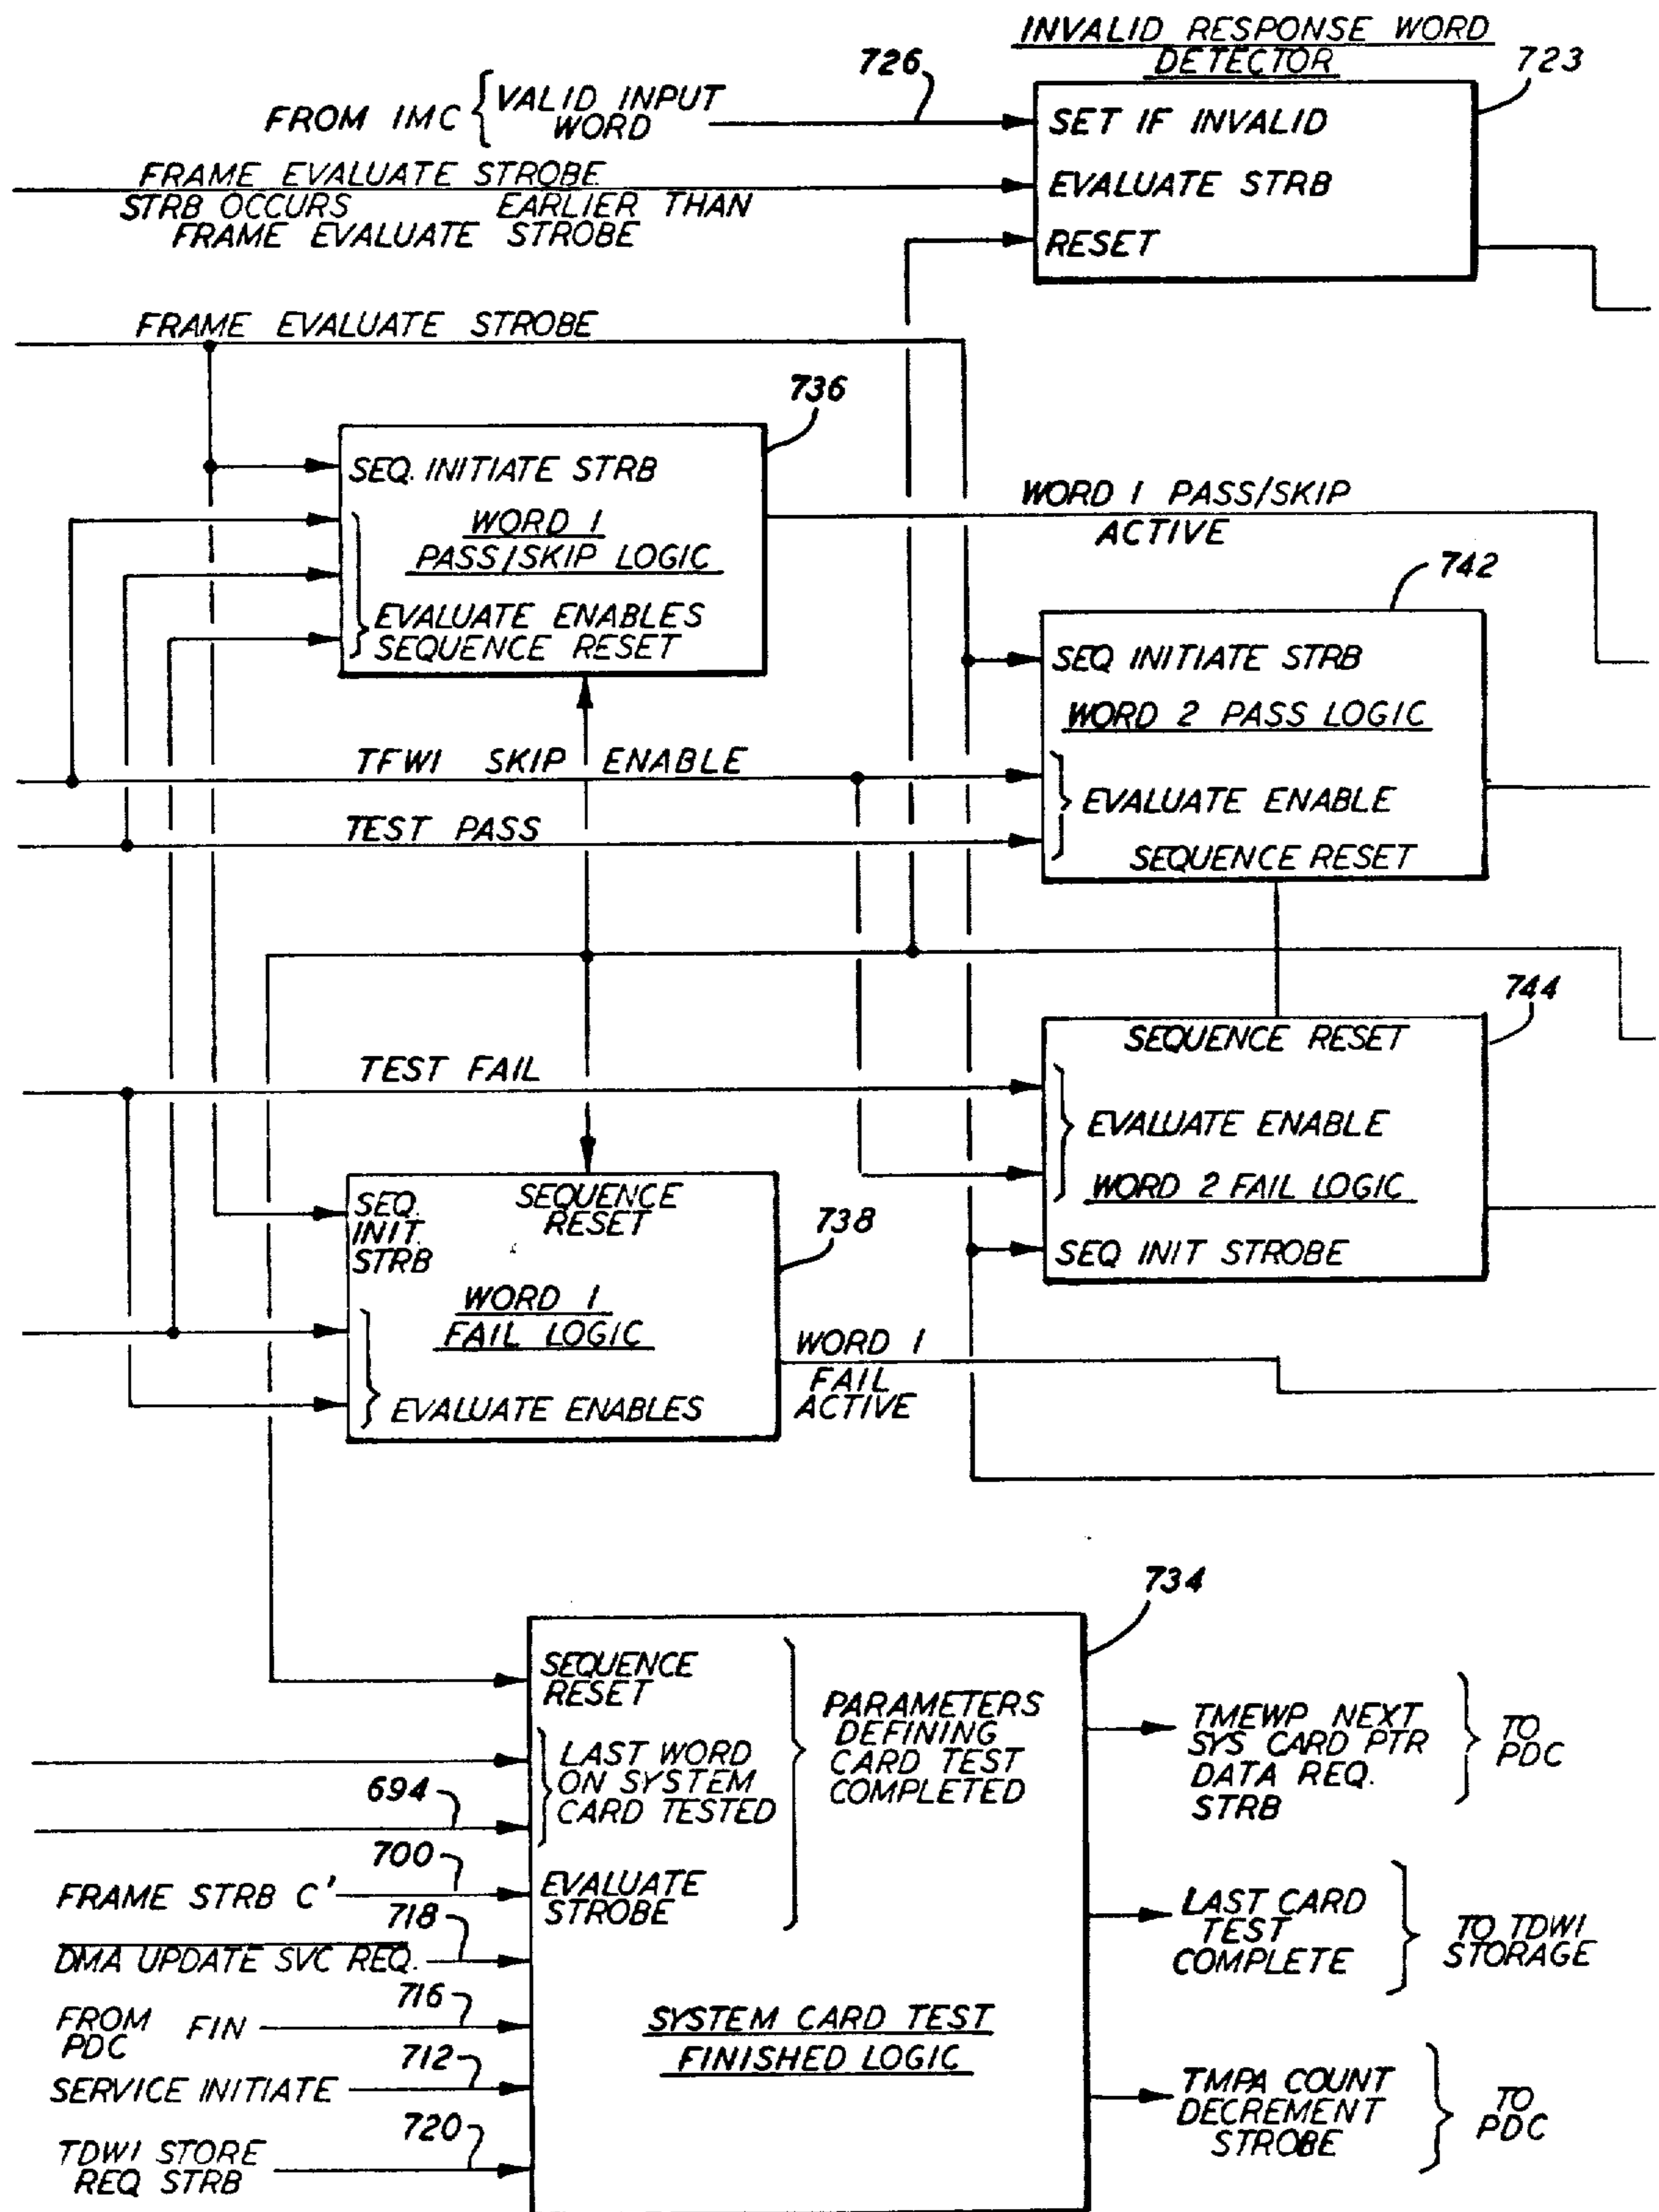 INVALID RESPONSE WORD
DETECTOR
726
723
FROM IMC { VALID INPUT
WORD
SET IF INVALID
FRAME EVALUATE STROBE
EVALUATE STRB
STRB OCCURS EARLIER THAN
FRAME EVALUATE STROBE
RESET
FRAME EVALUATE STROBE
736
SEQ. INITIATE STRB
WORD 1
PASS/SKIP LOGIC
EVALUATE ENABLES
SEQUENCE RESET
WORD 1 PASS/SKIP
ACTIVE
742
SEQ INITIATE STRB
WORD 2 PASS LOGIC
EVALUATE ENABLE
SEQUENCE RESET
TFWI SKIP ENABLE
TEST PASS
744
SEQUENCE RESET
EVALUATE ENABLE
WORD 2 FAIL LOGIC
SEQ INIT STROBE
TEST FAIL
SEQ.
INIT.
STRB
SEQUENCE
RESET
738
WORD 1
FAIL LOGIC
EVALUATE ENABLES
WORD 1
FAIL
ACTIVE
734
SEQUENCE
RESET
LAST WORD
ON SYSTEM
CARD TESTED
PARAMETERS
DEFINING
CARD TEST
COMPLETED
694
700
FRAME STRB C'
EVALUATE
STROBE
718
DMA UPDATE SVC REQ.
716
FROM
PDC
FIN
712
SERVICE INITIATE
720
TDWI STORE
REQ STRB
SYSTEM CARD TEST
FINISHED LOGIC
TMEWP NEXT
SYS CARD PTR
DATA REQ.
STRB
TO
PDC
LAST CARD
TEST
COMPLETE
TO TDWI
STORAGE
TMPA COUNT
DECREMENT
STROBE
TO
PDC